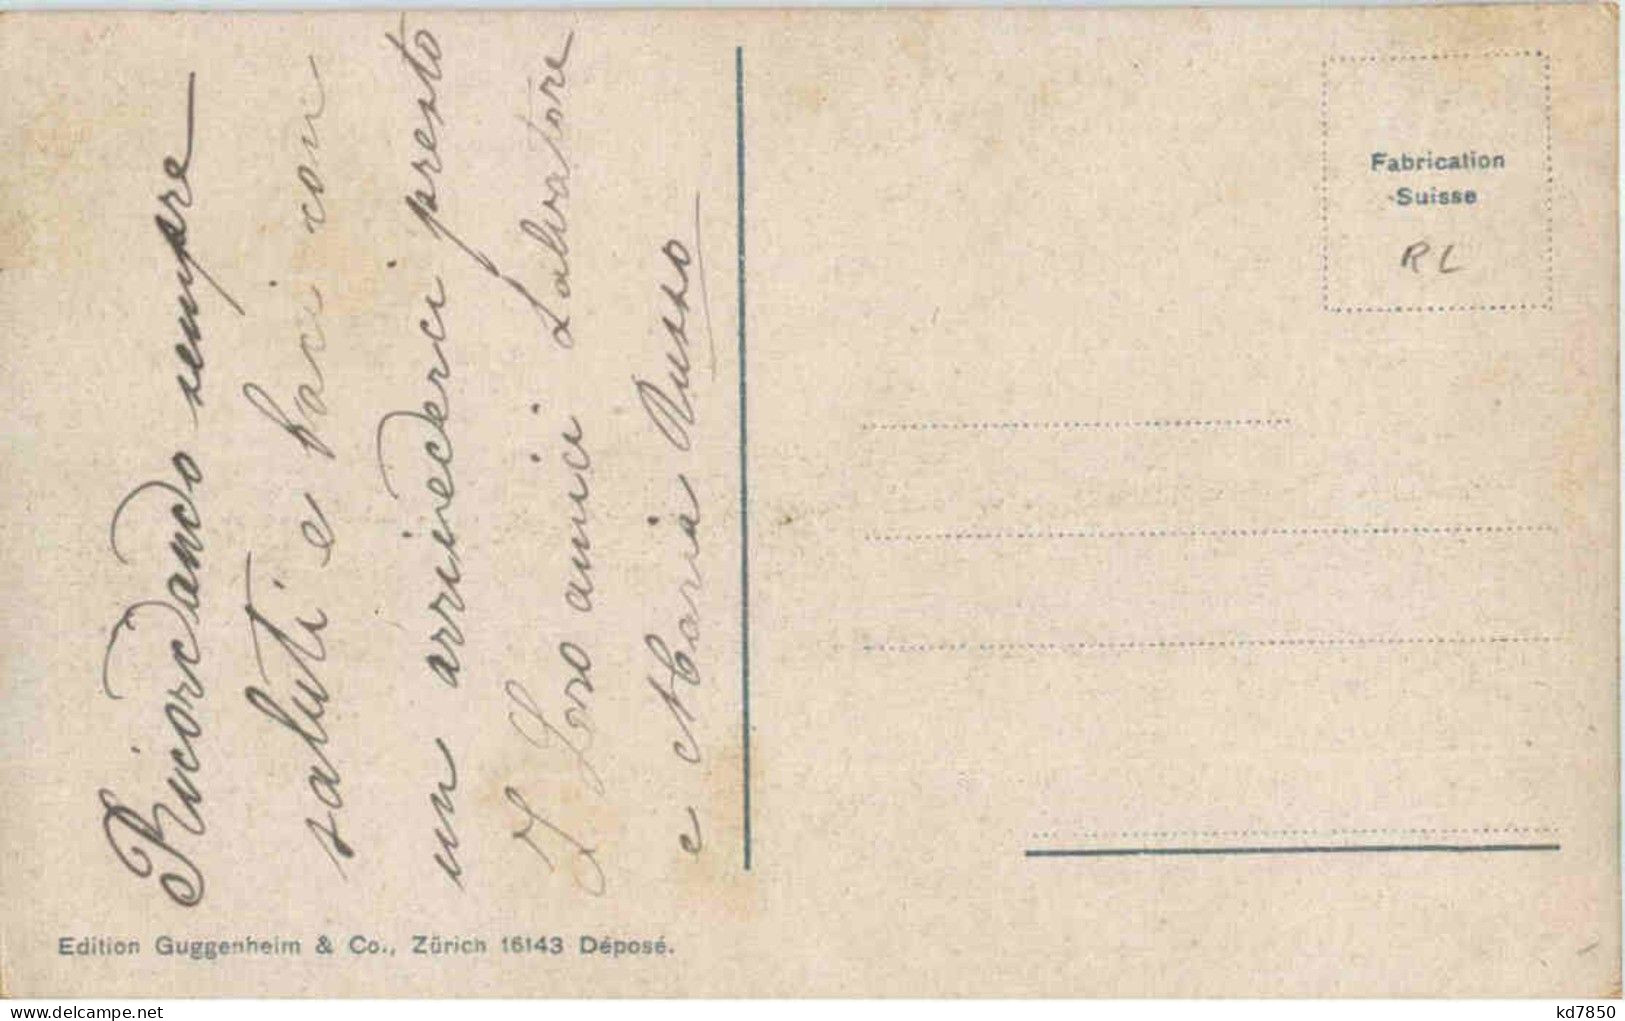 Ricordando sempre
saluti e baci con
un arrivederci presto
I Loro amici Salvatore
e Maria Russo
Fabrication
Suisse
RL
Edition Guggenheim & Co., Zürich 16143 Déposé.
kd7850